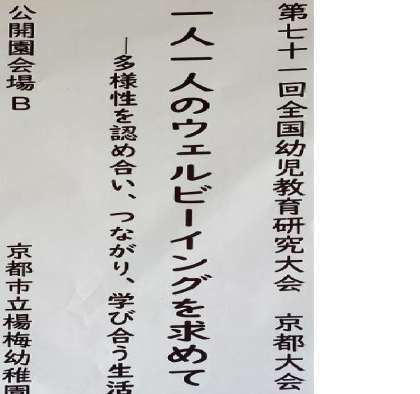 第七十一回全国幼児教育研究大会　京都大会
一人一人のウェルビーイングを求めて
―多様性を認め合い、つながり、学び合う生活
公開園会場B　京都市立楊梅幼稚園